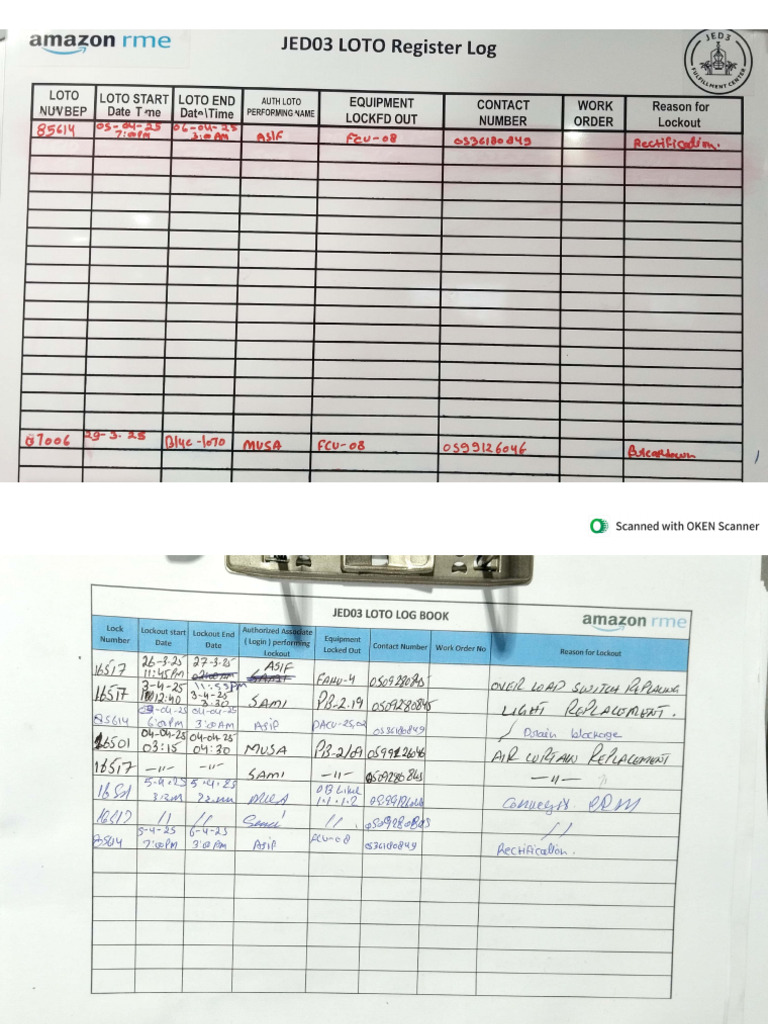 amazon rme
JED03 LOTO Register Log
JED3
FULFILLMENT CENTER
LOTO NUMBER LOTO START Date Time LOTO END Date\Time AUTH LOTO PERFORMING NAME EQUIPMENT LOCKED OUT CONTACT NUMBER WORK ORDER Reason for Lockout
85614 05-04-25 7:00PM 06-04-25 3:00AM ASIF FCU-08 0536180849 Rectification.
07006 29-3-25 Blue-loto MUSA FCU-08 0599126046 Breakdown
Scanned with OKEN Scanner
JED03 LOTO LOG BOOK
amazon rme
Lock Number Lockout start Date Lockout End Date Authorized Associate ( Login ) performing Lockout Equipment Locked Out Contact Number Work Order No Reason for Lockout
16517 26-3-25 11:45PM 27-3-25 ASIF FAHU-4 0509280845 OVER LOAD SWITCH REPLACING
16517 3-4-25 12:40 3-4-25 3:30 SAMI PB-2.19 0509280845 LIGHT REPLACEMENT.
85614 04-25 6:00PM 04-04-25 3:00AM Asif 0536180849 Drain blockage
16501 04-04-25 03:15 04-04-25 04:30 MUSA 0599126046 AIR CURTAIN REPLACEMENT
16517 -〃- -〃- SAMI -〃- 0509280845 -〃-
5.4.25 5.4.25
16517 // // Sami // 0509280845 //
85614 5-4-25 7:00PM 6-4-25 3:00AM Asif FCU-08 0536180849 Rectification.